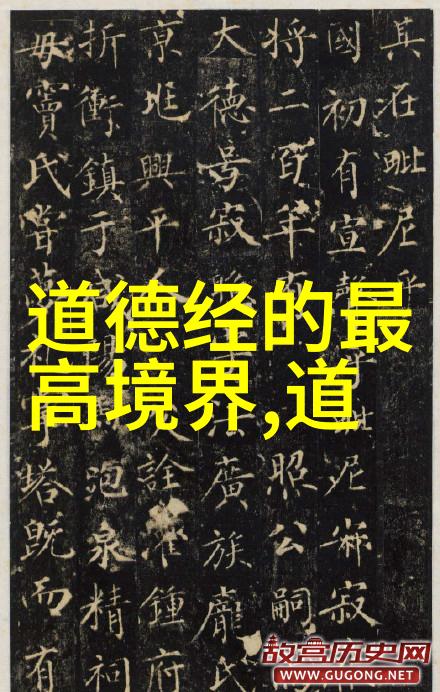 其在毗尼乎
國初有宣
寂
將二百年
照公嗣
大德号寂
廣族龐氏
京兆興平人
詮灌鍾府
折衝鎮于
泉精祠
毋竇氏嘗
塔既而有
道德经的最
高境界,道
故宫历史网
WWW.GUGONG.NET